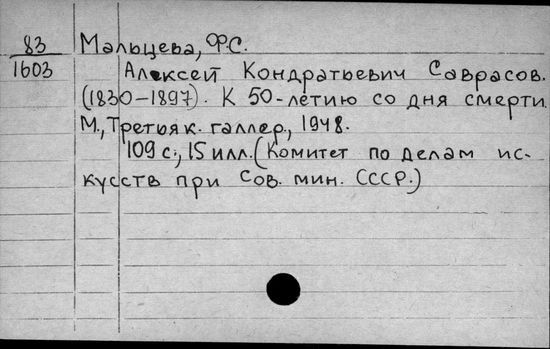 83 Мальцева, Ф.С.
1603 Алексей Кондратьевич Саврасов.
(1830-1897). К 50-летию со дня смерти.
М., Третьяк. галлер., 1948.
109 с., 15 илл. (Комитет по делам ис-
кусств при Сов. мин. СССР.)